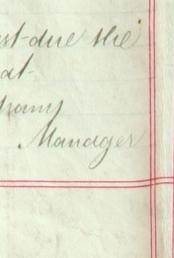 st due the
at
pany
Manager